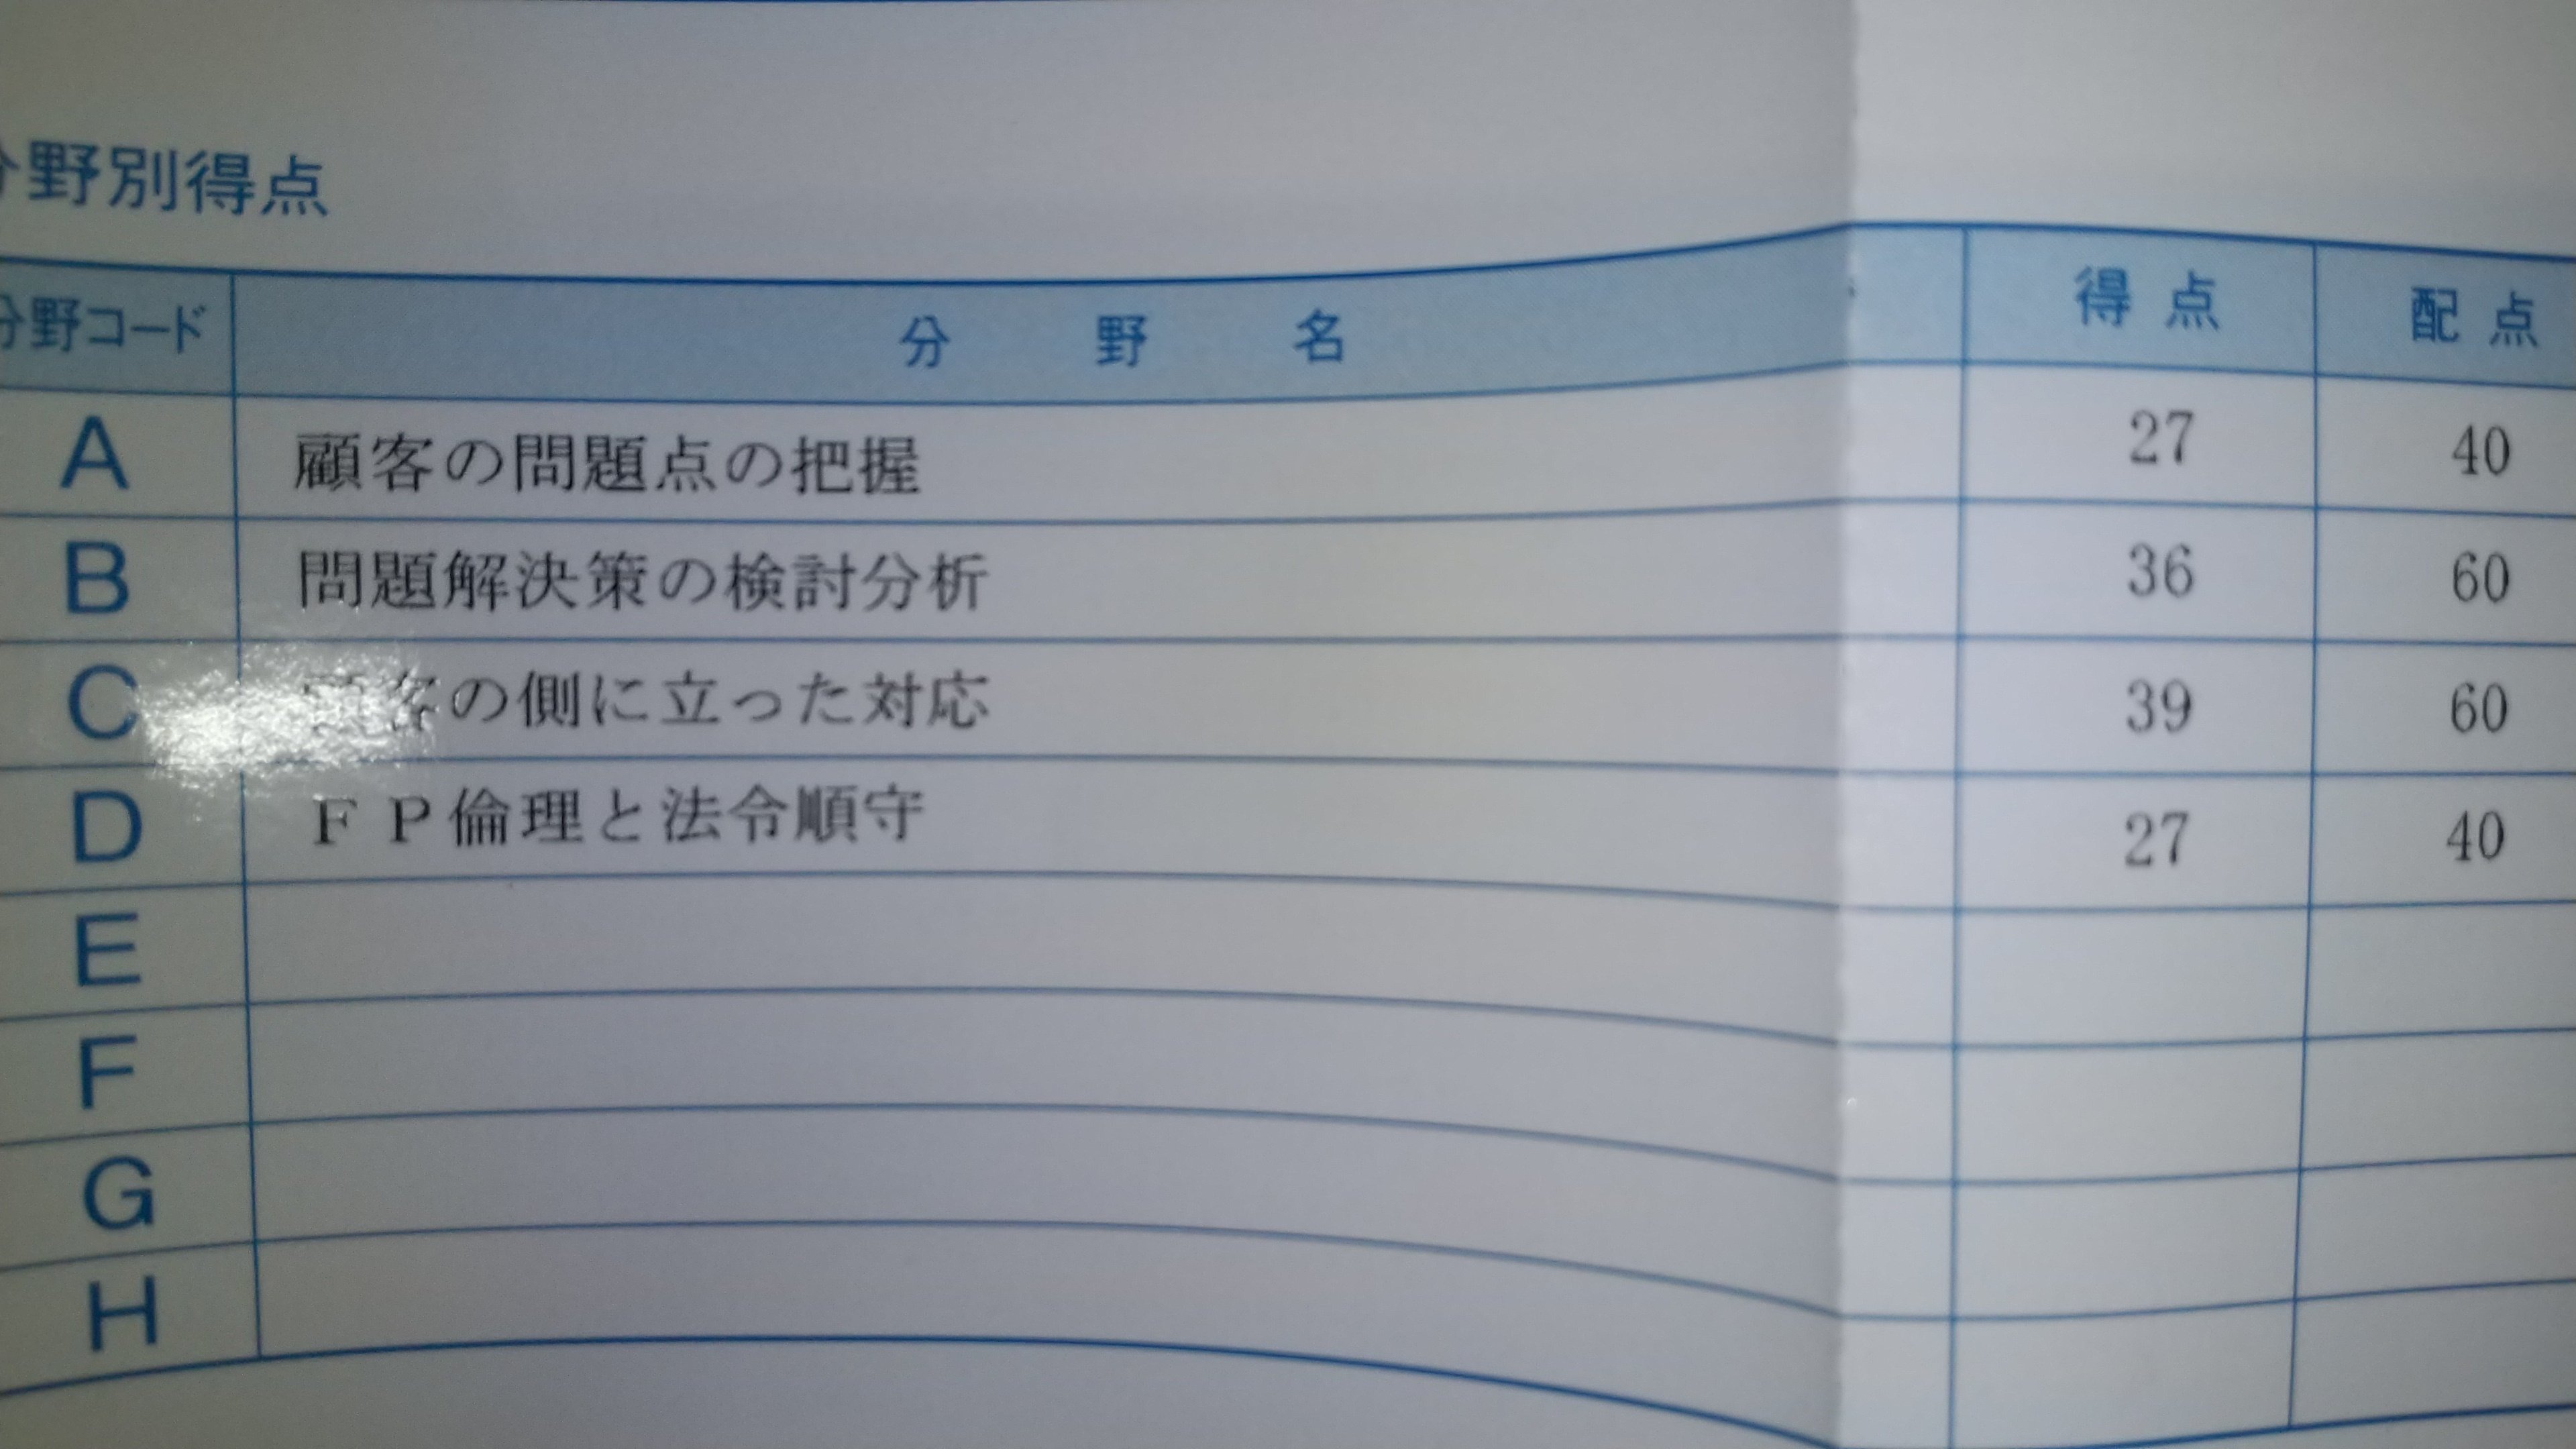 分野別得点
分野コード 分野名 得点 配点
A 顧客の問題点の把握 27 40
B 問題解決策の検討分析 36 60
C 顧客の側に立った対応 39 60
D ＦＰ倫理と法令順守 27 40
E
F
G
H